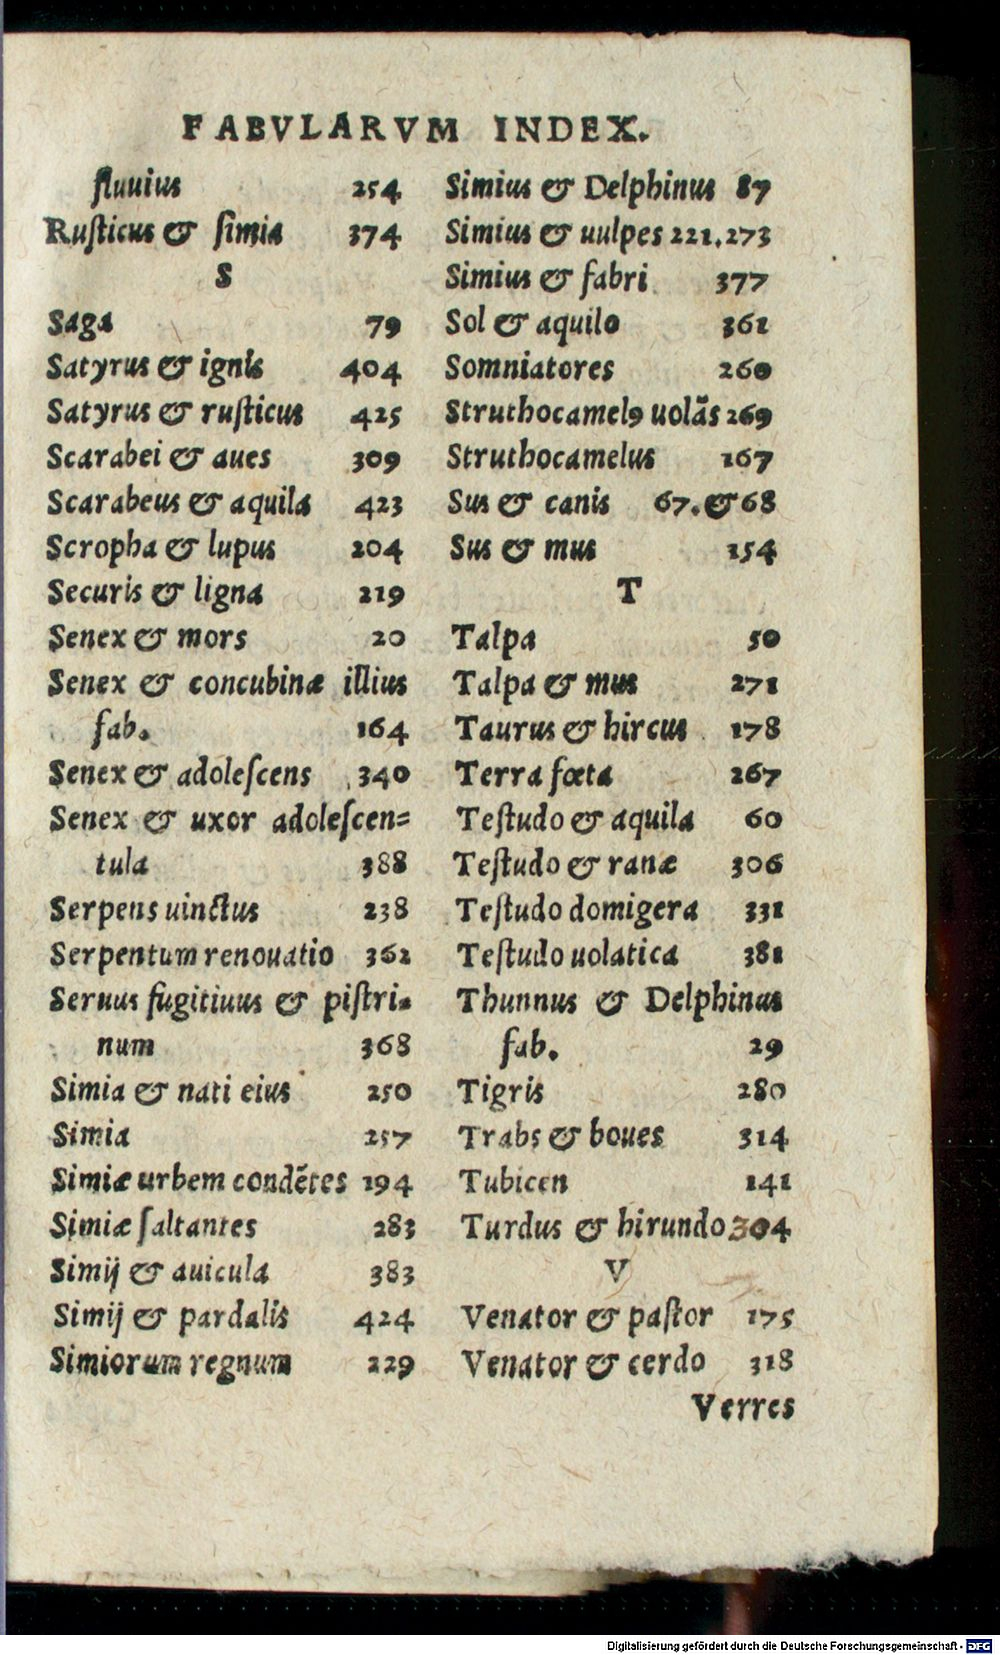 FABVLARVM INDEX.
fluuius 254
Rusticus & simia 374
S
Saga 79
Satyrus & ignis 404
Satyrus & rusticus 425
Scarabei & aues 309
Scarabeus & aquila 423
Scropha & lupus 204
Securis & ligna 219
Senex & mors 20
Senex & concubinæ illius
fab. 164
Senex & adolescens 340
Senex & uxor adolescen=
tula 388
Serpens uinctus 238
Serpentum renouatio 362
Seruus fugitiuus & pistri-
num 368
Simia & nati eius 250
Simia 257
Simiæ urbem condẽtes 194
Simiæ saltantes 283
Simij & auicula 383
Simij & pardalis 424
Simiorum regnum 229
Simius & Delphinus 87
Simius & uulpes 221.273
Simius & fabri 377
Sol & aquilo 361
Somniatores 260
Struthocamelꝰ uolãs 269
Struthocamelus 167
Sus & canis 67.&68
Sus & mus 154
T
Talpa 50
Talpa & mus 271
Taurus & hircus 178
Terra fœta 267
Testudo & aquila 60
Testudo & ranæ 306
Testudo domigera 331
Testudo uolatica 381
Thunnus & Delphinus
fab. 29
Tigris 280
Trabs & boues 314
Tubicen 141
Turdus & hirundo 304
V
Venator & pastor 175
Venator & cerdo 318
Verres
Digitalisierung gefördert durch die Deutsche Forschungsgemeinschaft - DFG